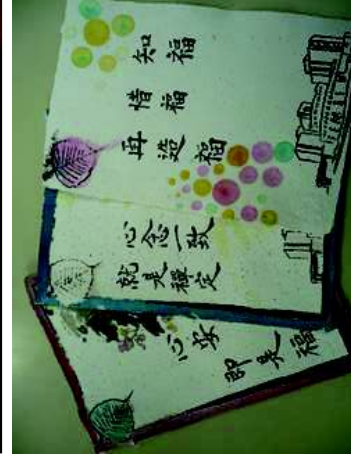 知福
惜福
再造福
心念一致
就是禪定
心安
即是福